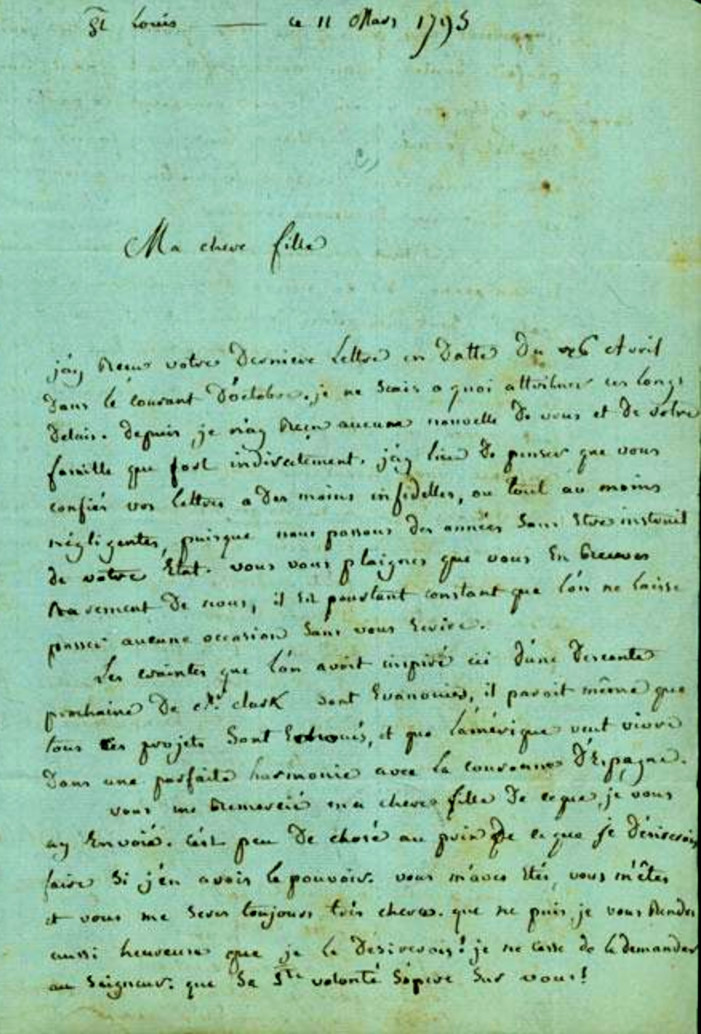 St Louis — ce 11 Mars 1795
Ma chere fille
j'ay Recu votre Derniere Lettre en Datte Du 26 Avril
Dans le courant D'octobre. je ne scais a quoi attribuer ces longs
Delais. depuis, je n'ay Reçu aucune nouvelle De vous et De votre
famille que fort indirectement. j'ay lieu De penser que vous
confiés vos lettres a Des mains infidelles, ou tout au moins
négligentes, puisque nous passons des années sans Etre instruit
de votre Etat. vous vous plaignes que vous En Receves
Rarement De nous, il Est pourtant constant que l'on ne laisse
passer aucune occasion sans vous Ecrire.
Les craintes que l'on avoit inspiré ici D'une Descente
prochaine De Mr. clark sont Evanouies, il paroit même que
tous ces projets sont Echoués, et que l'amérique veut vivre
Dans une parfaite harmonie avec la couronne D'Espagne.
vous me Remercié ma chere fille De ce que je vous
ay Envoié. c'est peu De chose au prix De ce que je Désirerois
faire si j'en avois le pouvoir. vous m'aves Eté, vous m'êtes
et vous me seres toujours très chere. que ne puis je vous Rendre
aussi heureuse que je le Desirerois! je ne cesse de le demander
au seigneur. que Sa Ste volonté s'opere sur vous!